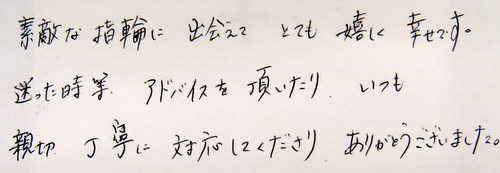 素敵な指輪に 出会えて とても 嬉しく 幸せです。
迷った時等、アドバイスを 頂いたり、いつも
親切 丁寧に 対応してくださり ありがとうございました。